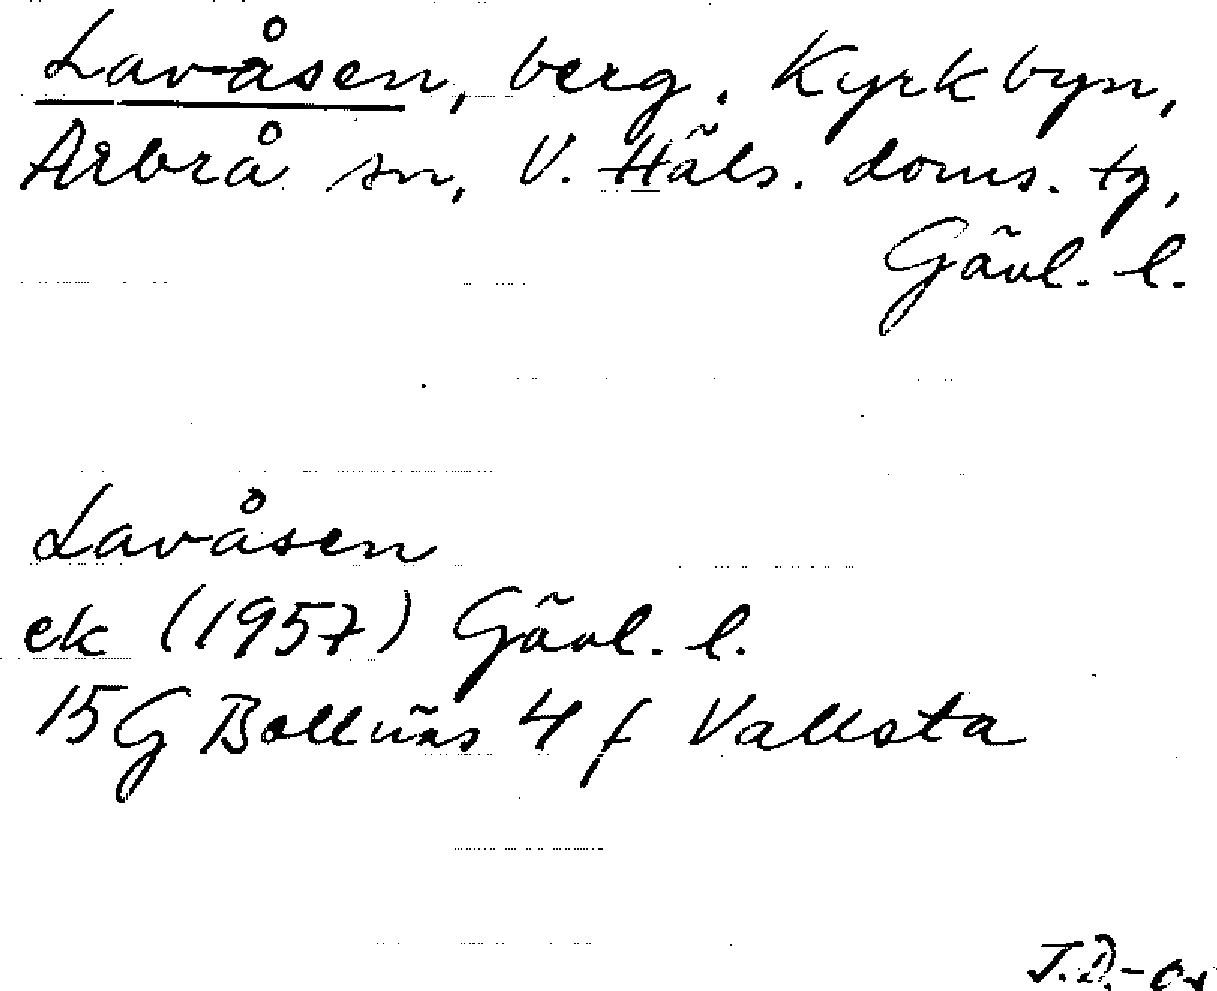 Lavåsen, berg. Kyrkbyn,
Arbrå sn, V. Häls. doms. tg,
Gävl. l.
Lavåsen
ek (1957) Gävl. l.
15 G Bollnäs 4 f Vallsta
J.D.-